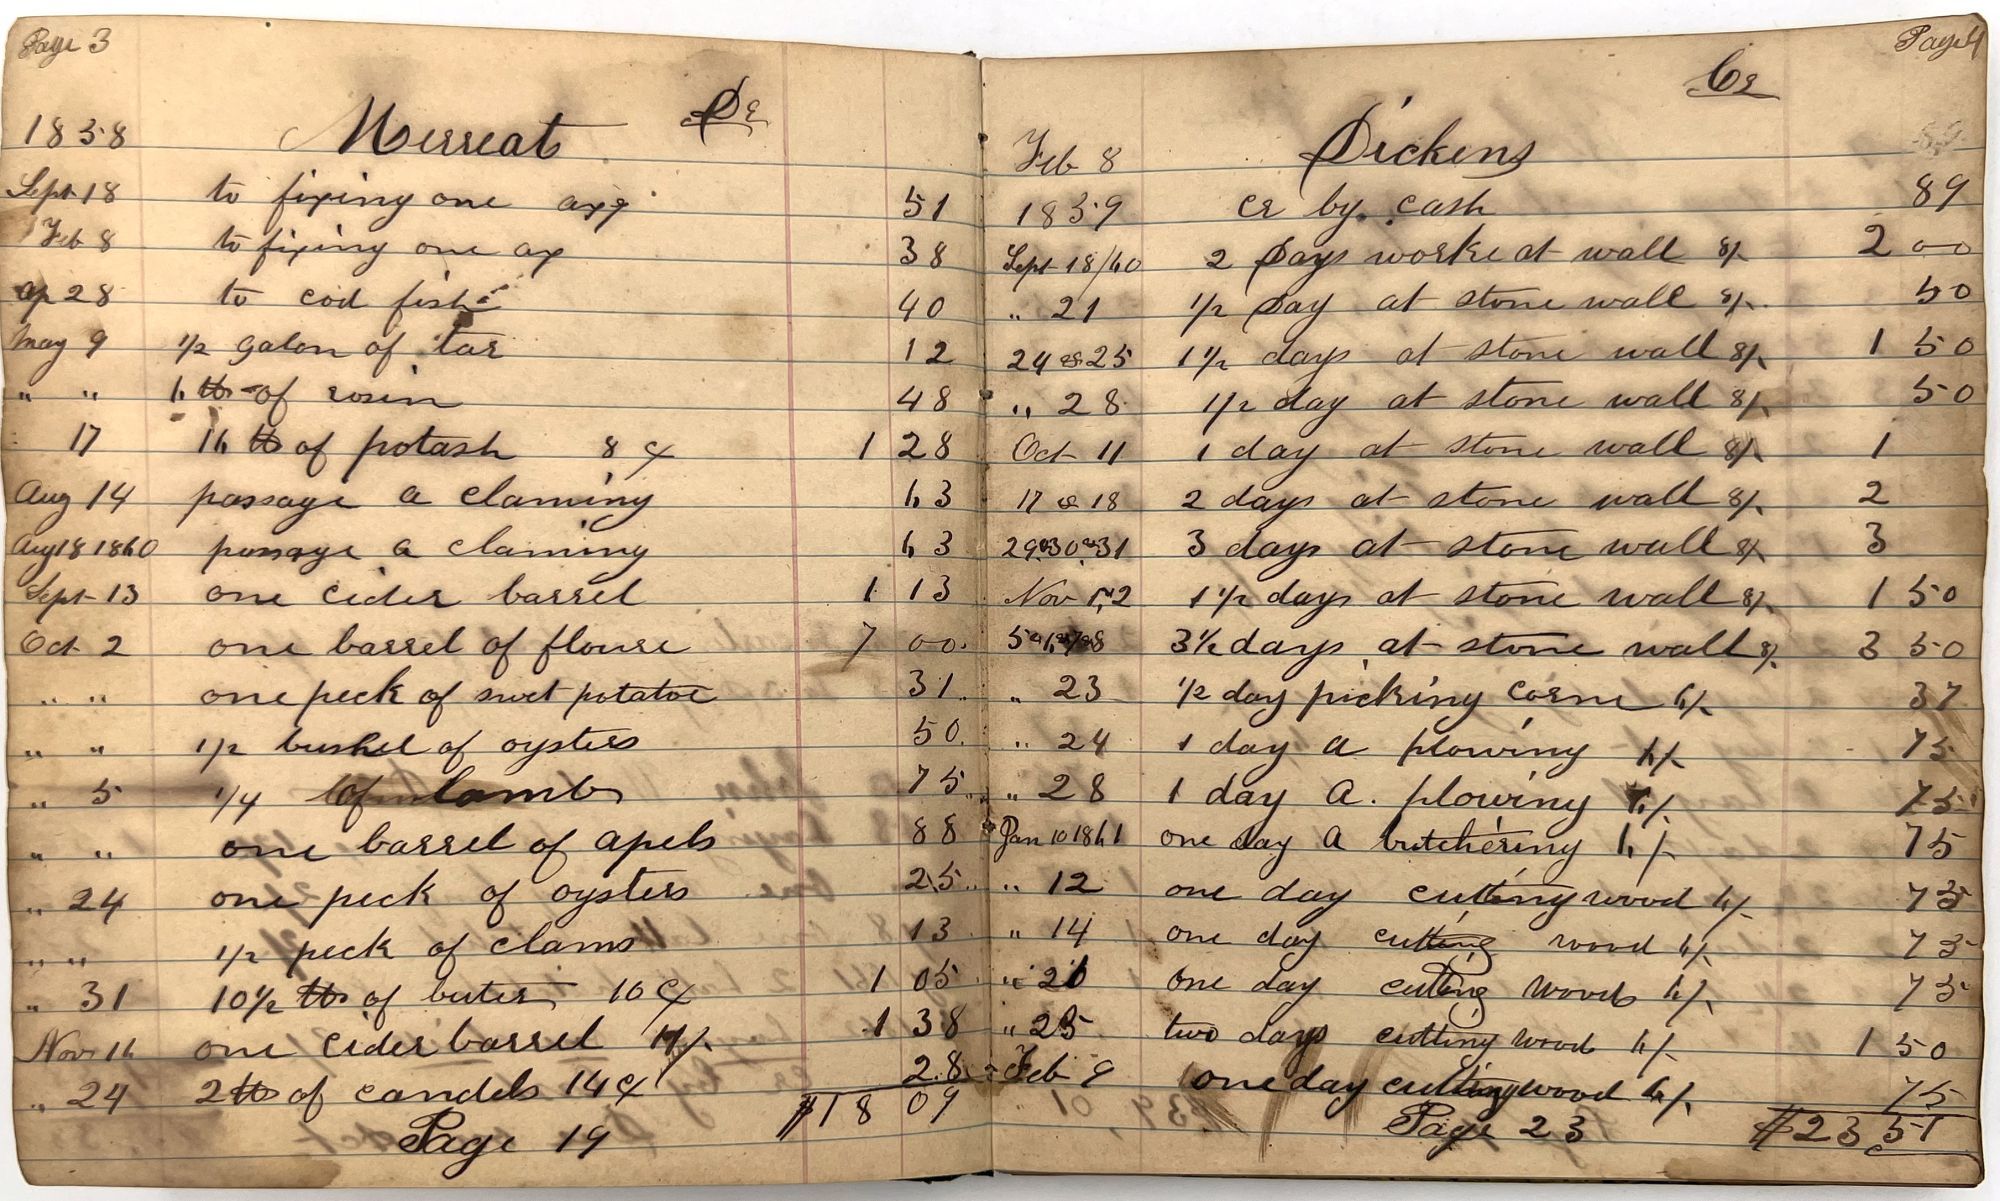 Page 3
Dr
1858 Merreat
Sept 18 to fixing one axe 51
Feb 8 to fixing one ax 38
Ap 28 to cod fish 40
May 9 1/2 galon of tar 12
" " 6 lbs of rosin 48
17 16 lb of potash 8 c 1 28
Aug 14 passage a claming 63
Aug 18 1860 passage a claming 63
Sept 13 one cider barrel 1 13
Oct 2 one barrel of floure 7 00
" " one peck of swet potatoe 31
" " 1/2 bushel of oysters 50
" 5 1/4 of lamb 75
" " one barrel of apels 88
" 24 one peck of oysters 25
" " 1/2 peck of clams 13
" 31 10 1/2 lbs of buter 10 c 1 05
Nov 16 one cider barrel 11/ 1 38
" 24 2 lbs of candels 14 c 28
$18 09
Page 19
Page 4
Cr
Feb 8 Dickens
1859 cr by cash 89
Sept 18/60 2 Days worke at wall 8/ 2 00
" 21 1/2 Day at stone wall 8/ 50
24 & 25 1 1/2 days at stone wall 8/ 1 50
" 28 1/2 day at stone wall 8/ 50
Oct 11 1 day at stone wall 8/ 1
17 & 18 2 days at stone wall 8/ 2
29 & 30 & 31 3 days at stone wall 8/ 3
Nov 1 & 2 1 1/2 days at stone wall 8/ 1 50
5 & 6 & 7 & 8 3 1/2 days at stone wall 8/ 3 50
" 23 1/2 day picking corne 6/ 37
" 24 1 day a plowing 6/ 75
" 28 1 day a. plowing 6/ 75
Jan 10 1861 one day a butchering 6/ 75
" 12 one day cutting wood 6/ 75
" 14 one day cutting wood 6/ 75
" 20 one day cutting wood 6/ 75
" 25 two days cutting wood 6/ 1 50
Feb 9 one day cutting wood 6/ 75
Page 23 $23 51